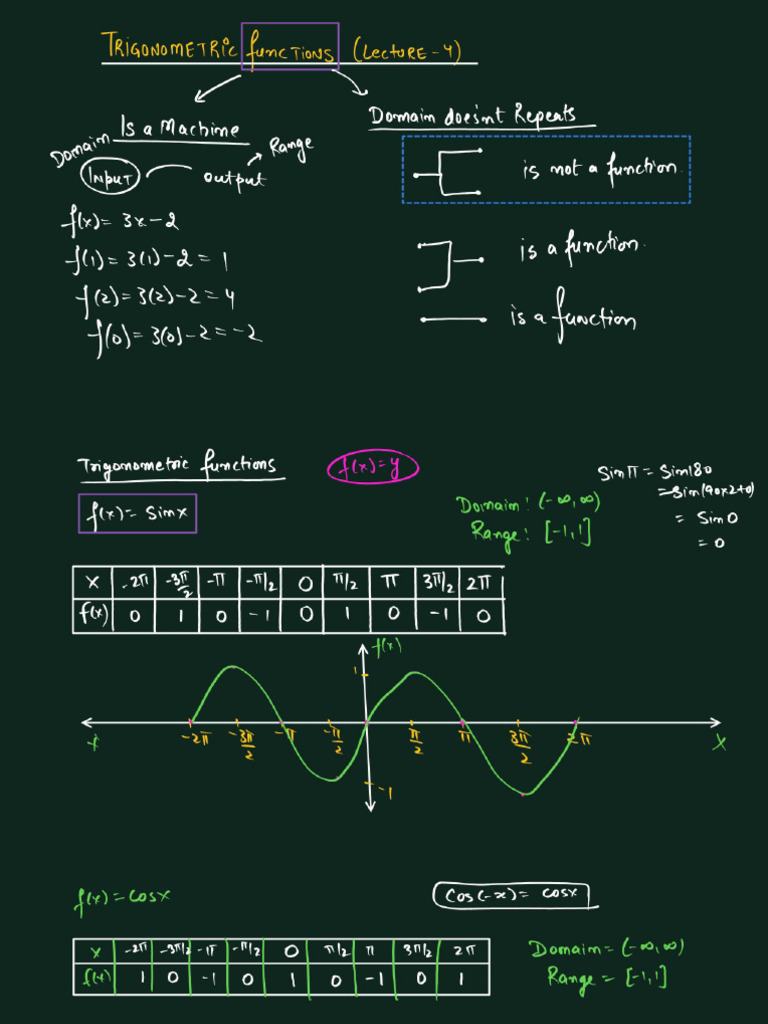 TRIGONOMETRIC functions (LECTURE-4)
Is a Machine
Domain
Input
output
Range
f(x) = 3x-2
f(1) = 3(1)-2 = 1
f(2) = 3(2)-2 = 4
f(0) = 3(0)-2 = -2
Domain does'nt Repeats
is not a function.
is a function.
is a function
Trigonometric functions
f(x)=y
f(x) = Sinx
Domain: (-∞,∞)
Range: [-1,1]
Sinπ = Sin180
=Sin(90x2+0)
= Sin0
= 0
x -2π -3π/2 -π -π/2 0 π/2 π 3π/2 2π
f(x) 0 1 0 -1 0 1 0 -1 0
f(x)
1
-2π -3π/2 -π -π/2 π/2 π 3π/2 2π
x x
-1
f(x) = cosx
Cos(-x) = cosx
x -2π -3π/2 -π -π/2 0 π/2 π 3π/2 2π
f(x) 1 0 -1 0 1 0 -1 0 1
Domain = (-∞,∞)
Range = [-1,1]